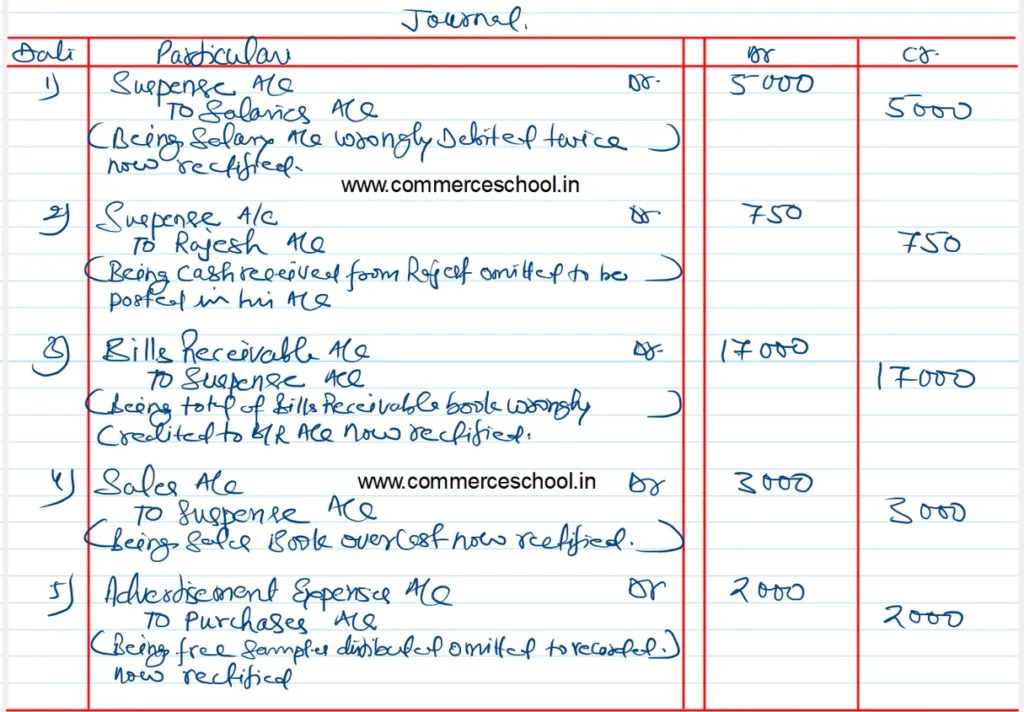 Journal.
Date Particulars Dr Cr.
1) Suspense A/c Dr. 5000
To Salaries A/c 5000
(Being Salary A/c wrongly Debited twice )
now rectified.
www.commerceschool.in
2) Suspense A/c Dr 750
To Rajesh A/c 750
(Being Cash received from Rajesh omitted to be )
posted in his A/c
3) Bills Receivable A/c Dr. 17000
To Suspense A/c 17000
(Being total of Bills Receivable book wrongly )
Credited to B/R A/c now rectified.
4) Sales A/c www.commerceschool.in Dr 3000
To Suspense A/c 3000
(Being Sales Book overcast now rectified.)
5) Advertisement Expenses A/c Dr 2000
To Purchases A/c 2000
(Being free samples distributed omitted to recorded.)
now rectified